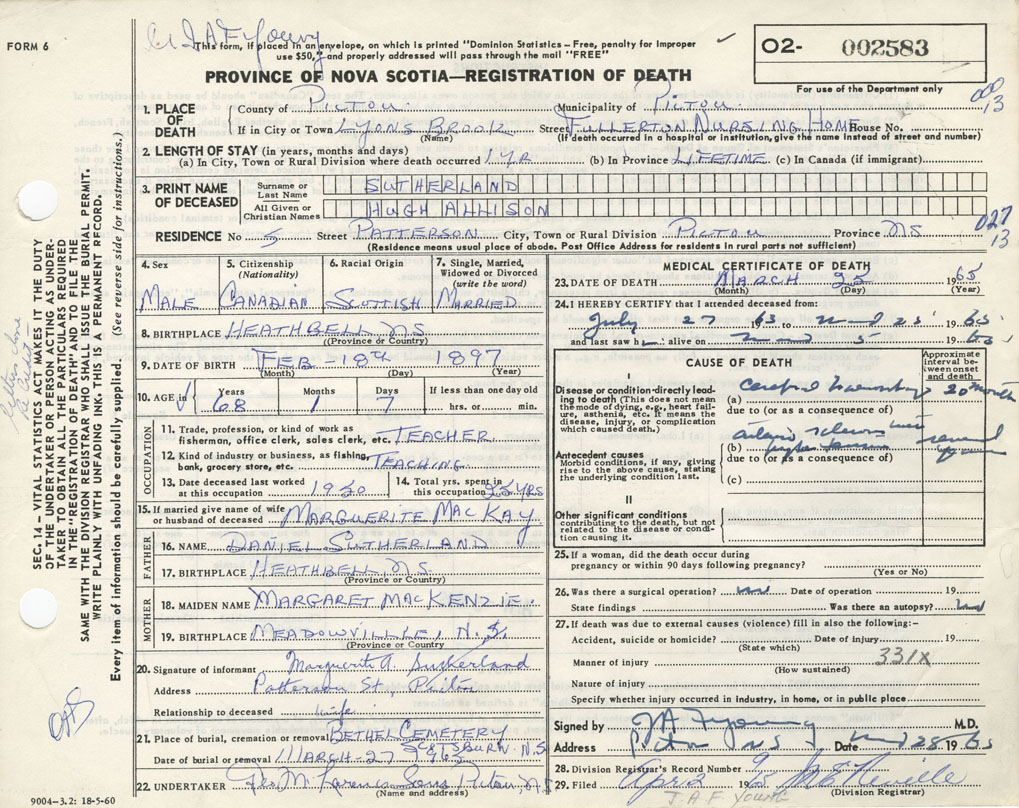 FORM 6
J A F Young
This form, if placed in an envelope, on which is printed "Dominion Statistics – Free, penalty for improper
use $50," and properly addressed will pass through the mail "FREE"
O2- 002583
For use of the Department only
PROVINCE OF NOVA SCOTIA—REGISTRATION OF DEATH
1. PLACE OF DEATH
County of PICTOU Municipality of PICTOU
If in City or Town LYONS BROOK Street FULLERTON NURSING HOME House No.
(Name) (If death occurred in hospital or institution, give the name instead of street and number)
13
2. LENGTH OF STAY (in years, months and days)
(a) In City, Town or Rural Division where death occurred 1 YR (b) In Province LIFETIME (c) In Canada (if immigrant)
3. PRINT NAME OF DECEASED
Surname or Last Name SUTHERLAND
All Given or Christian Names HUGH ALLISON
RESIDENCE No 5 Street PATTERSON City, Town or Rural Division PICTOU Province NS
(Residence means usual place of abode. Post Office Address for residents in rural parts not sufficient)
027
13
4. Sex
MALE
5. Citizenship (Nationality)
CANADIAN
6. Racial Origin
SCOTTISH
7. Single, Married, Widowed or Divorced (write the word)
MARRIED
8. BIRTHPLACE HEATHBELL NS
(Province or Country)
9. DATE OF BIRTH FEB 18th 1897
(Month) (Day) (Year)
10. AGE in Years 68 Months 1 Days 7 If less than one day old hrs. or min.
OCCUPATION
11. Trade, profession, or kind of work as fisherman, office clerk, sales clerk, etc. TEACHER
12. Kind of industry or business, as fishing, bank, grocery store, etc. TEACHING
13. Date deceased last worked at this occupation 1950
14. Total yrs. spent in this occupation 25 YRS
15. If married give name of wife or husband of deceased MARGUERITE MACKAY
FATHER
16. NAME DANIEL SUTHERLAND
17. BIRTHPLACE HEATHBELL, NS
(Province or Country)
MOTHER
18. MAIDEN NAME MARGARET MACKENZIE.
19. BIRTHPLACE MEADOWVILLE, N.S.
(Province or Country)
20. Signature of informant Marguerite A. Sutherland
Address Patterson St, Pictou
Relationship to deceased wife
21. Place of burial, cremation or removal BETHEL CEMETERY
SCOTSBURN. N.S
Date of burial or removal MARCH-27 1965
22. UNDERTAKER Sons Pictou, NS
(Name and address)
9004-3.2: 18-5-60
MEDICAL CERTIFICATE OF DEATH
23. DATE OF DEATH MARCH 25 1965
(Month) (Day) (Year)
24. I HEREBY CERTIFY that I attended deceased from:
July 27 63 to 25 1965
and last saw h alive on 5 1965
CAUSE OF DEATH
Approximate interval between onset and death
I
Disease or condition directly leading to death (This does not mean the mode of dying, e.g., heart failure, asthenia, etc. It means the disease, injury, or complication which caused death.)
(a) Cerebral haemorrhage 20 months
due to (or as a consequence of)
Antecedent causes
Morbid conditions, if any, giving rise to the above cause, stating the underlying condition last.
(b) several years
due to (or as a consequence of)
(c)
II
Other significant conditions
contributing to the death, but not related to the disease or condition causing it.
25. If a woman, did the death occur during
pregnancy or within 90 days following pregnancy?
(Yes or No)
26. Was there a surgical operation? no Date of operation 19
State findings Was there an autopsy? no
27. If death was due to external causes (violence) fill in also the following:–
Accident, suicide or homicide? Date of injury 19
(State which)
331X
Manner of injury
(How sustained)
Nature of injury
Specify whether injury occurred in industry, in home, or in public place
Signed by J A F Young M.D.
Address Pictou NS Date 28 1965
28. Division Registrar's Record Number 9
29. Filed Apr 2 1965
(Division Registrar)
J. A. F. YOUNG
SEC. 14 – VITAL STATISTICS ACT MAKES IT THE DUTY
OF THE UNDERTAKER OR PERSON ACTING AS UNDER-
TAKER TO OBTAIN ALL THE PARTICULARS REQUIRED
IN THE "REGISTRATION OF DEATH" AND TO FILE THE
SAME WITH THE DIVISION REGISTRAR WHO SHALL ISSUE THE BURIAL PERMIT.
WRITE PLAINLY WITH UNFADING INK. THIS IS A PERMANENT RECORD.
Every item of information should be carefully supplied. (See reverse side for instructions.)